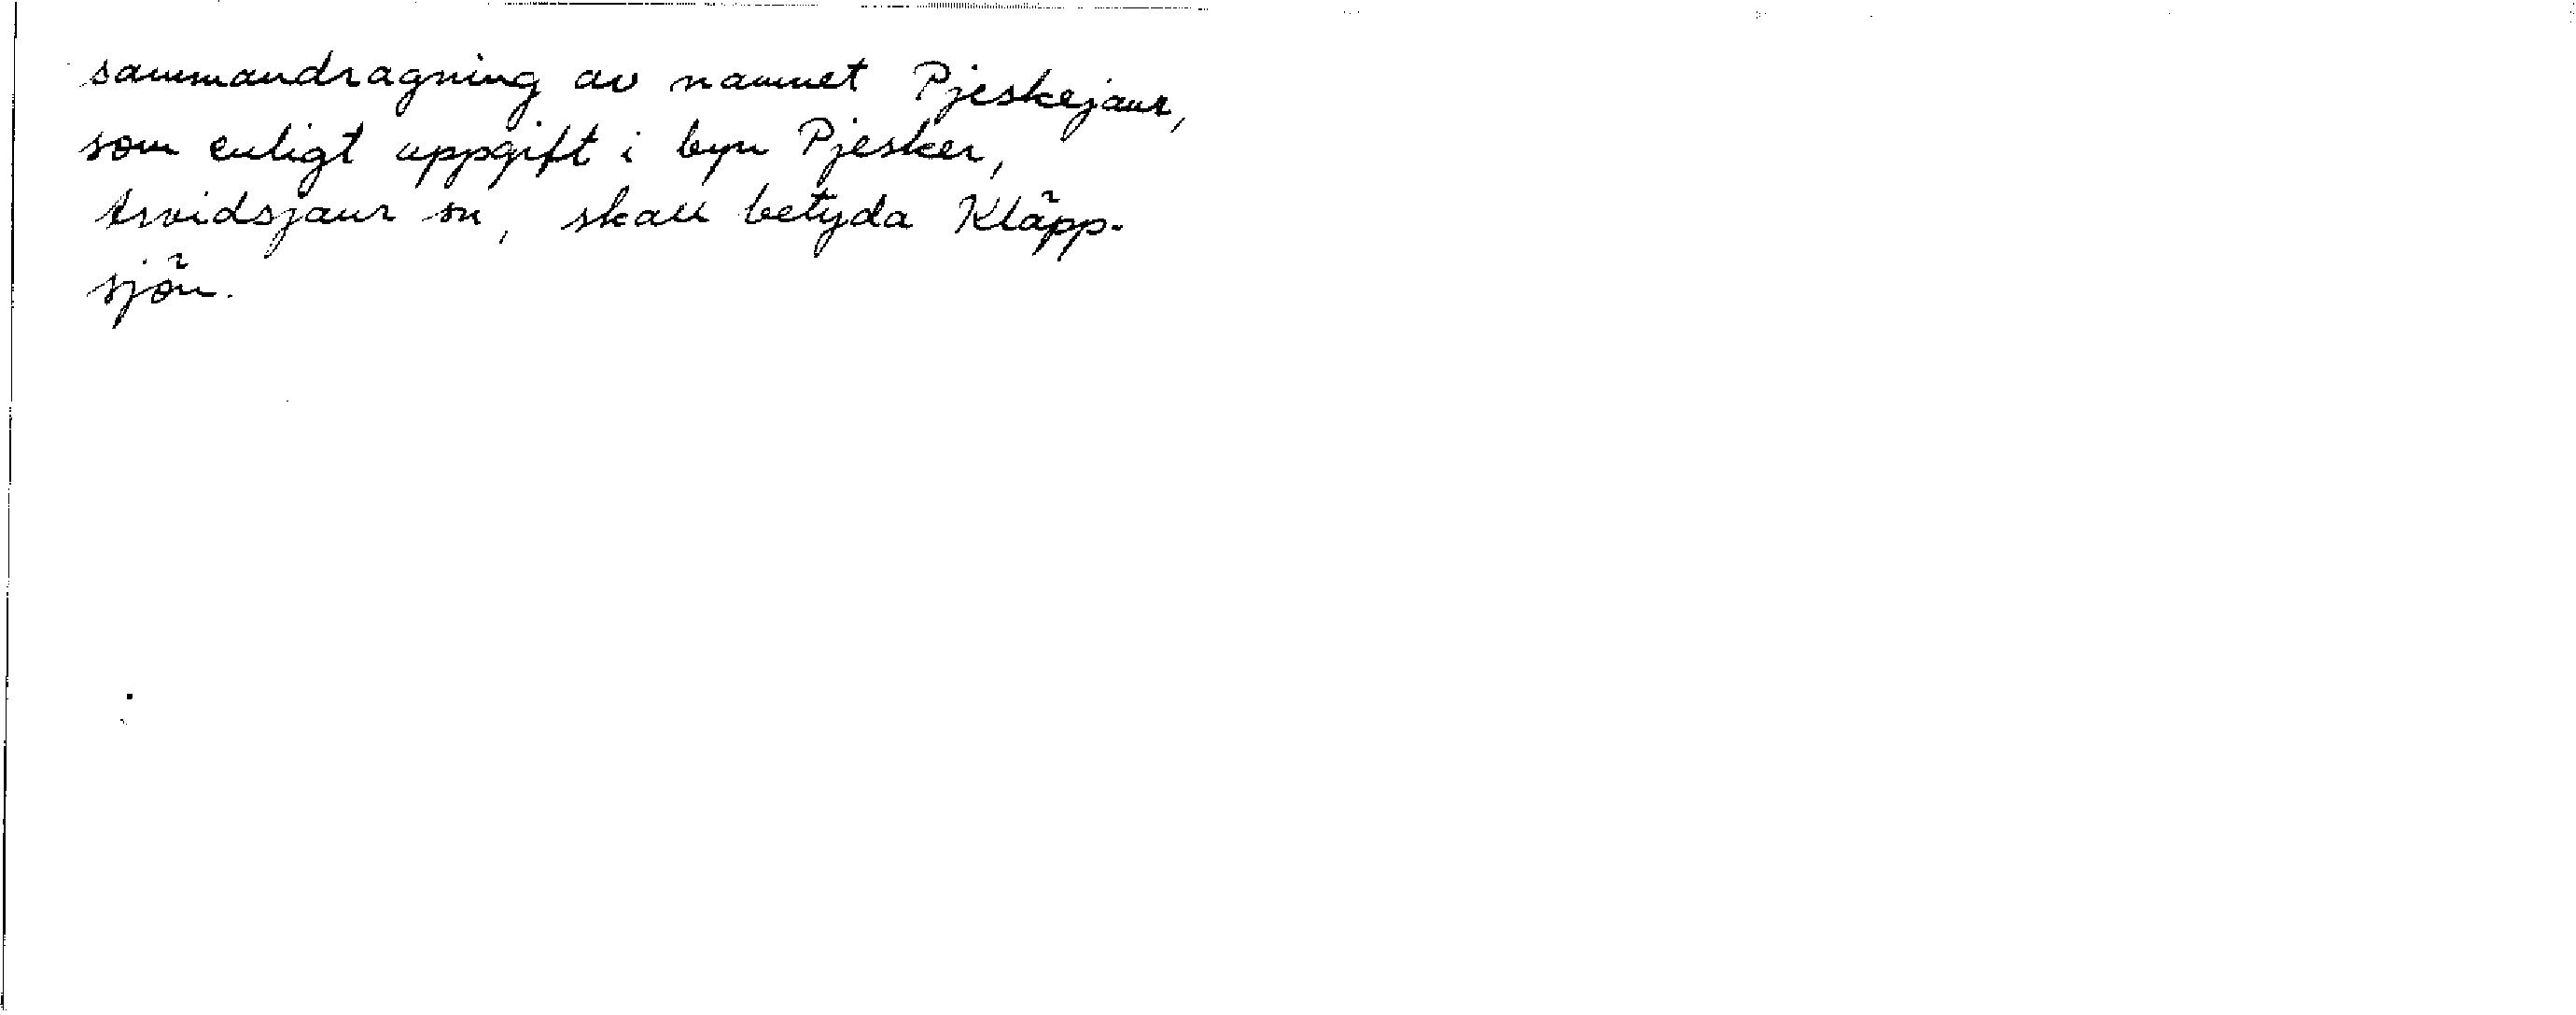 sammandragning av namnet Pjeskejaur,
som enligt uppgift i byn Pjesker,
Arvidsjaur sn, skall betyda Kläpp-
sjön.